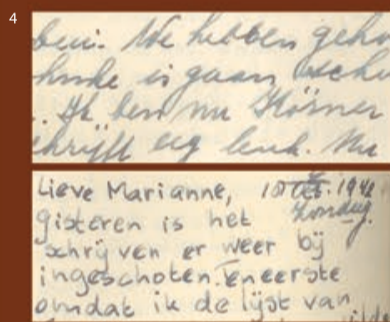 4
ben. We hebben geho
hnke is gaan sche
.. Ik ben nu Körner
chrijft erg leuk. Nu
Lieve Marianne, 18 Oct. 1942
Zondag.
gisteren is het
schrijven er weer bij
ingeschoten. Ten eerste
omdat ik de lijst van